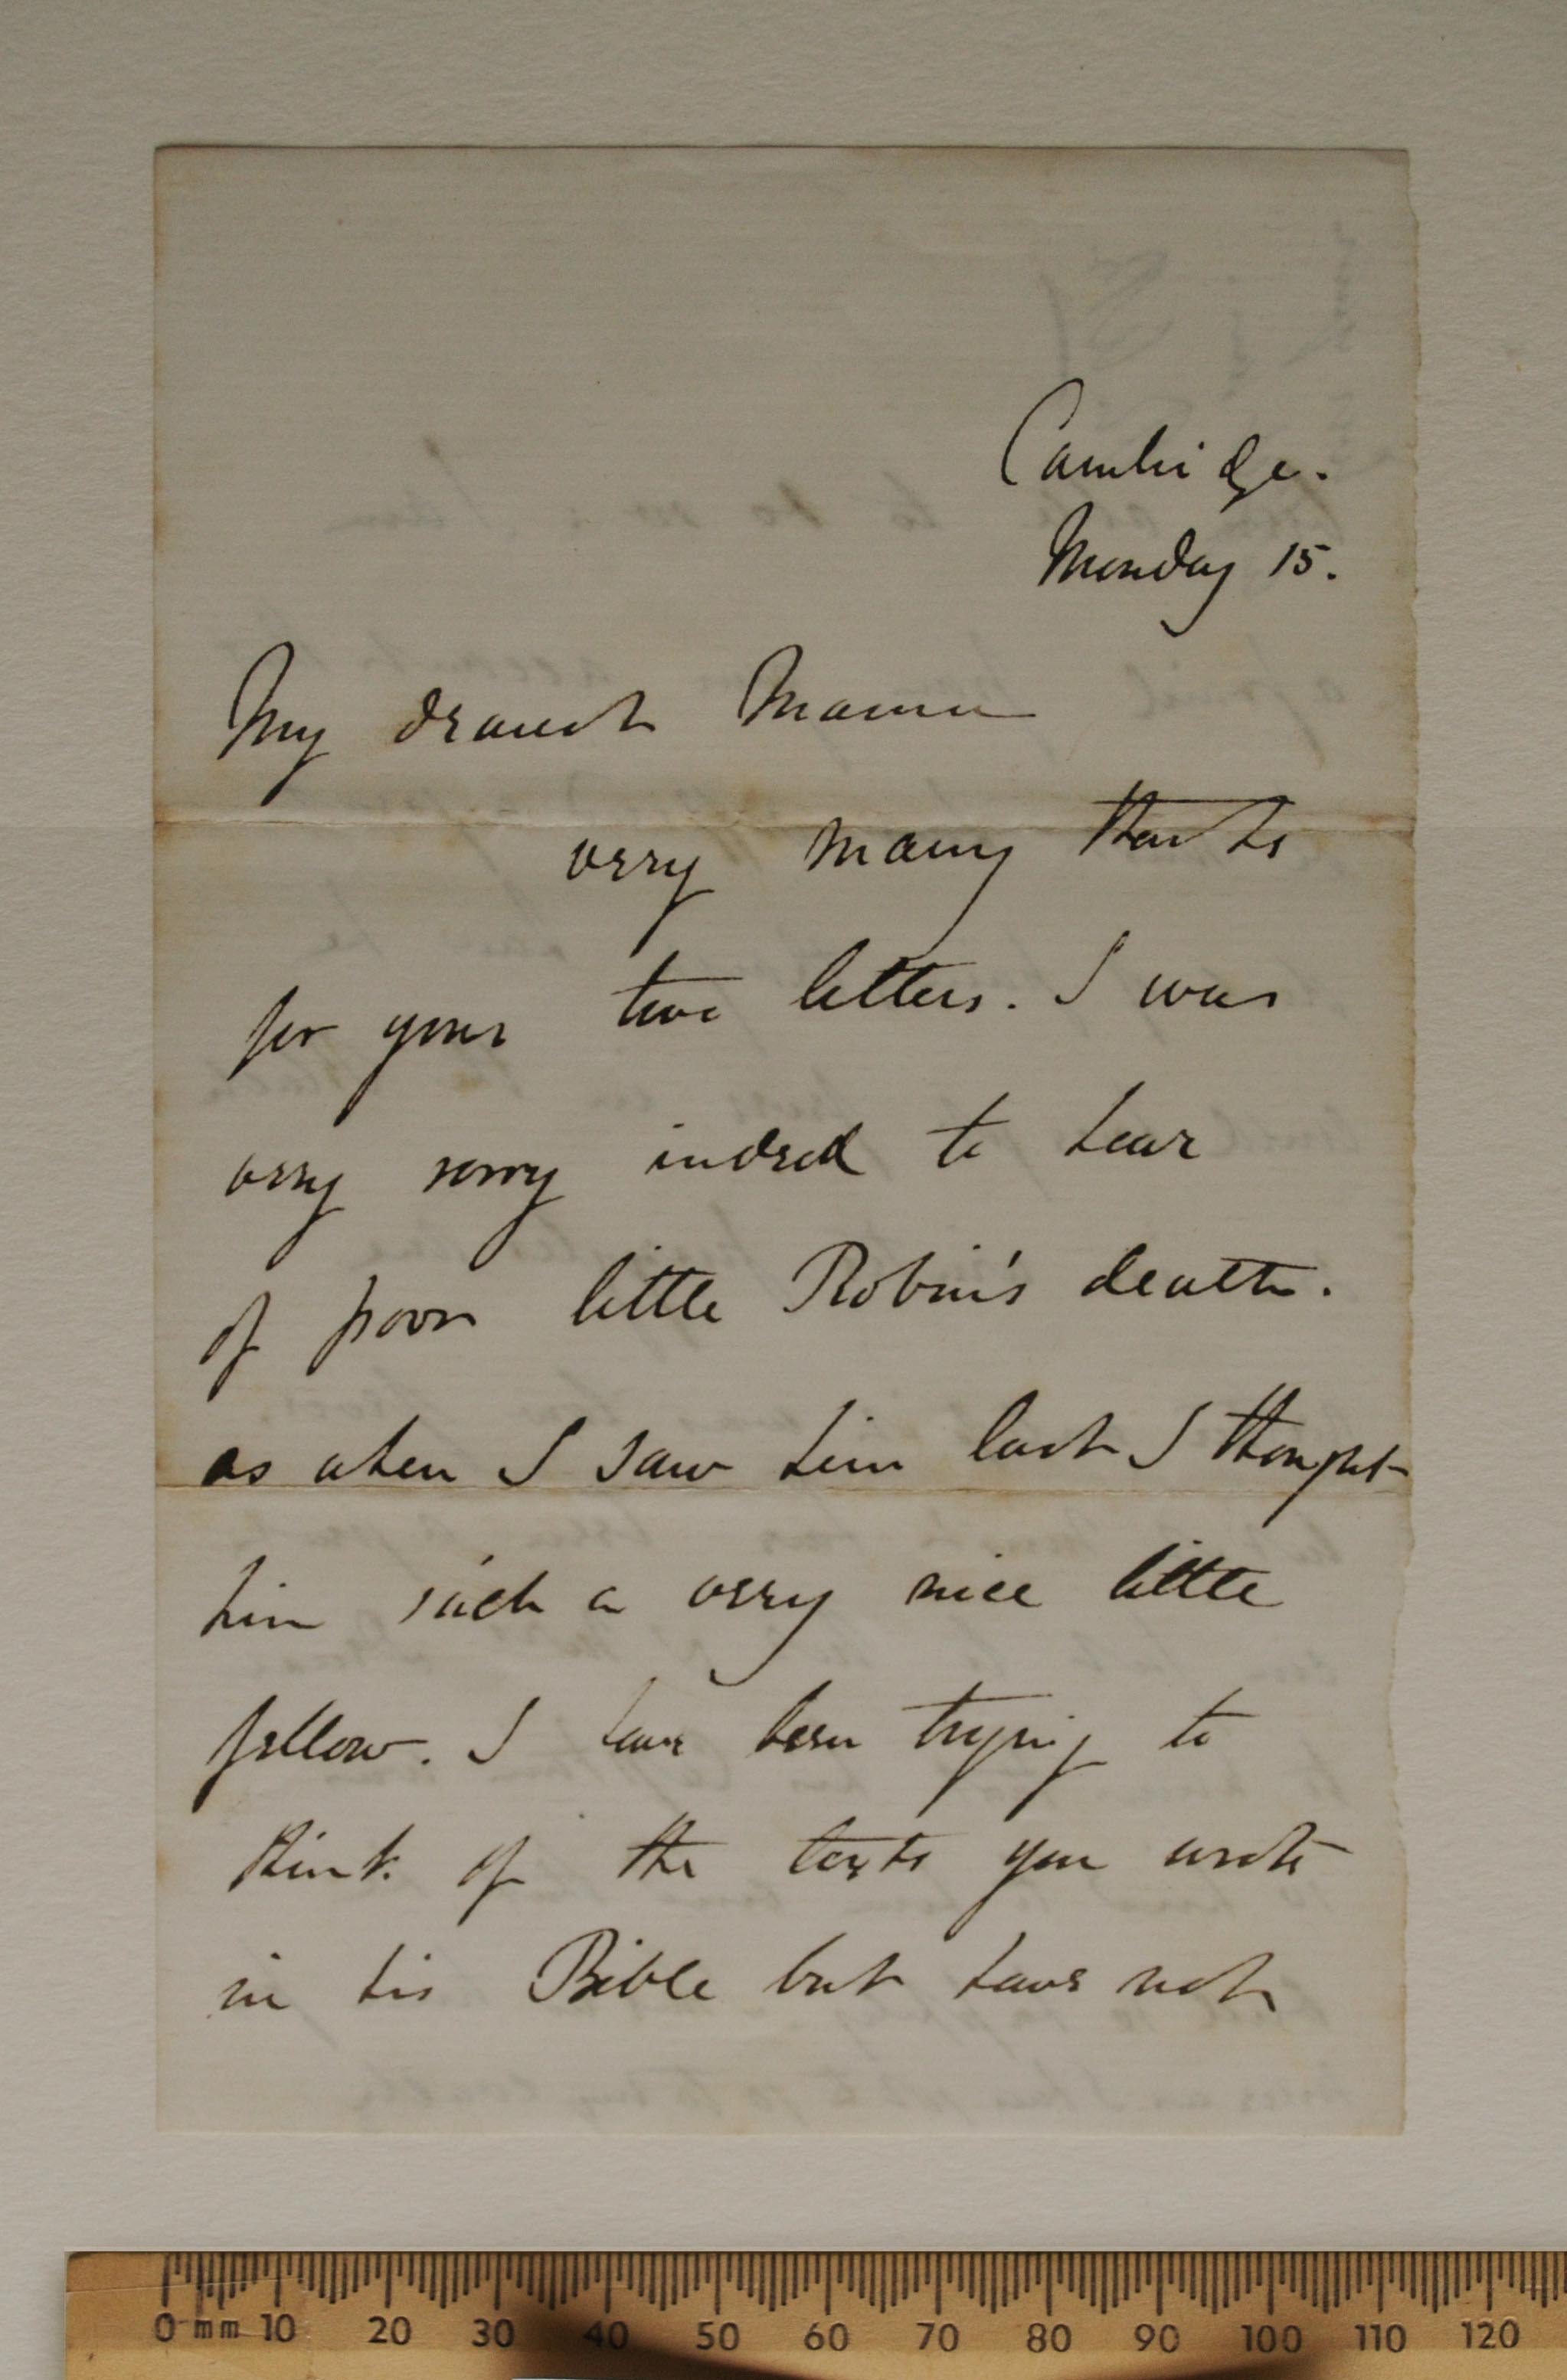 Cambridge.
Monday 15.
My dearest Mama
very many thanks
for your two letters. I was
very sorry indeed to hear
of poor little Robin's death.
as when I saw him last I thought
him such a very nice little
fellow. I have been trying to
think of the texts you wrote
in his Bible but have not
0 mm 10 20 30 40 50 60 70 80 90 100 110 120